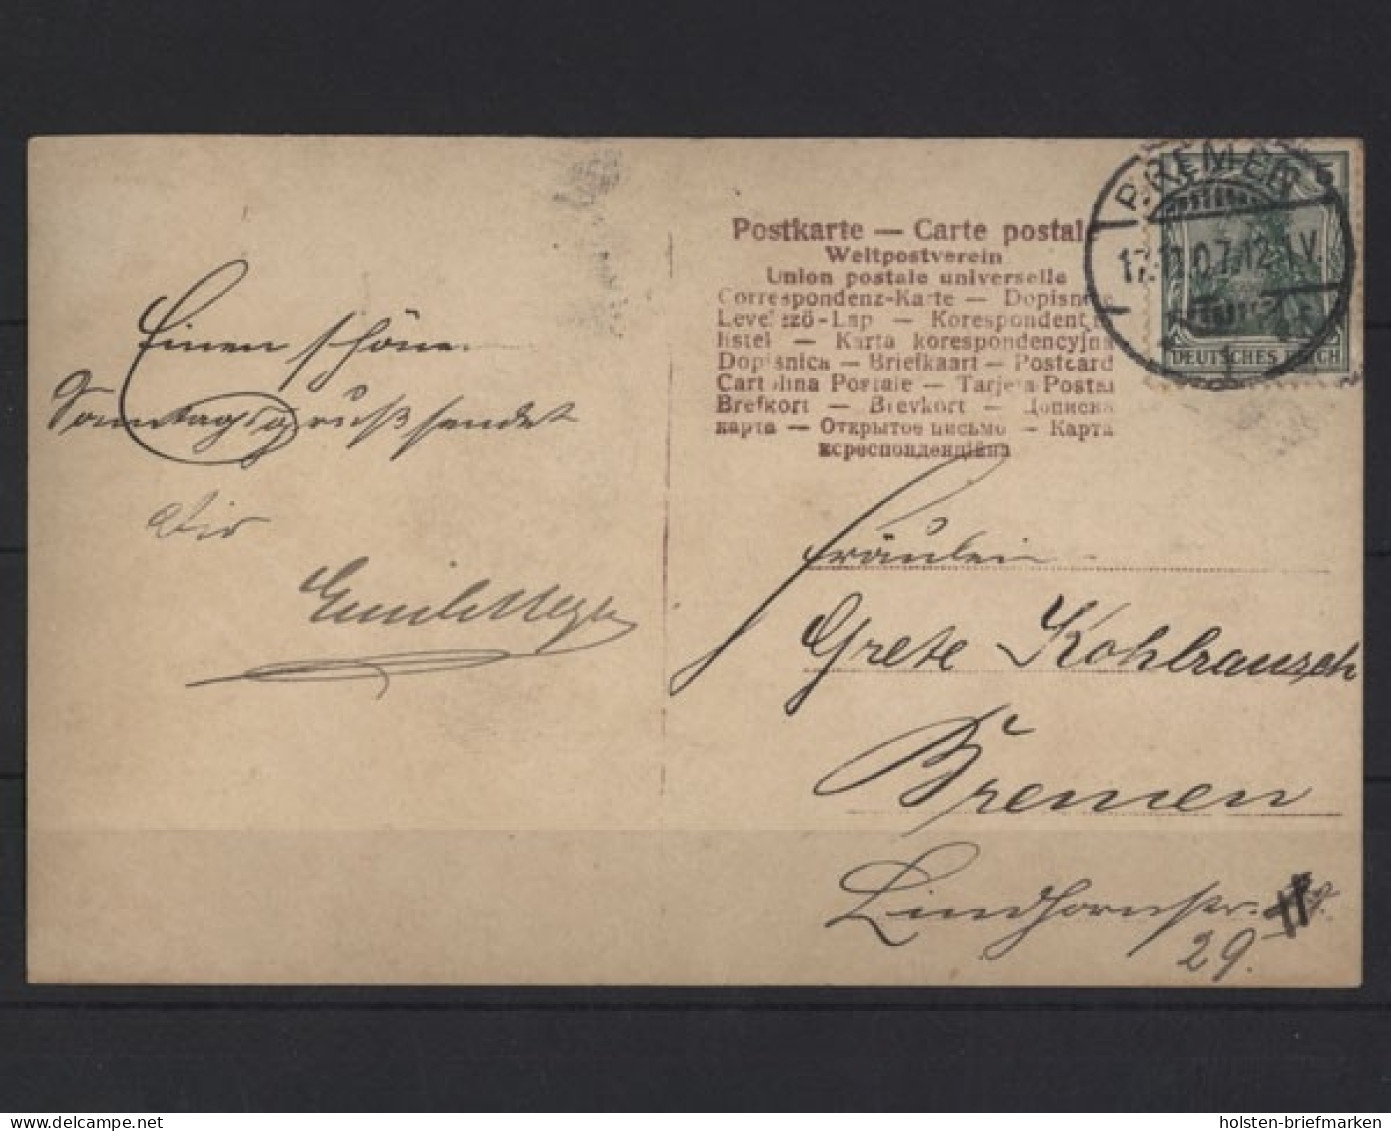 Einen schönen
Sonntagsgruß sendet
Dir
Emil Meyer
Postkarte — Carte postale
Weltpostverein
Union postale universelle
Correspondenz-Karte — Dopisnice
Levelező-Lap — Korespondentní
lístek — Karta korespondencyjna
Dopisnica — Briefkaart — Postcard
Cartolina Postale — Tarjeta Postal
Brefkort — Brevkort — Дописна
карта — Открытое письмо — Карта
кореспонденційна
BREMEN 5
17.11.07.12-1V.
DEUTSCHES REICH
Fräulein
Grete Kohlrausch
Bremen
Lindhornstr.
29.
holsten-briefmarken